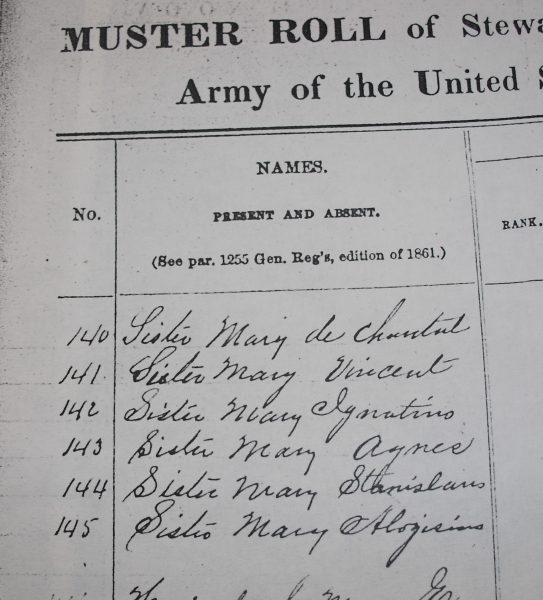 MUSTER ROLL of Stewa
Army of the United S
No.
NAMES.
PRESENT AND ABSENT.
(See par. 1255 Gen. Reg's, edition of 1861.)
RANK.
140 Sister Mary de Chantal
141 Sister Mary Vincent
142 Sister Mary Ignatius
143 Sister Mary Agnes
144 Sister Mary Stanislaus
145 Sister Mary Aloysius